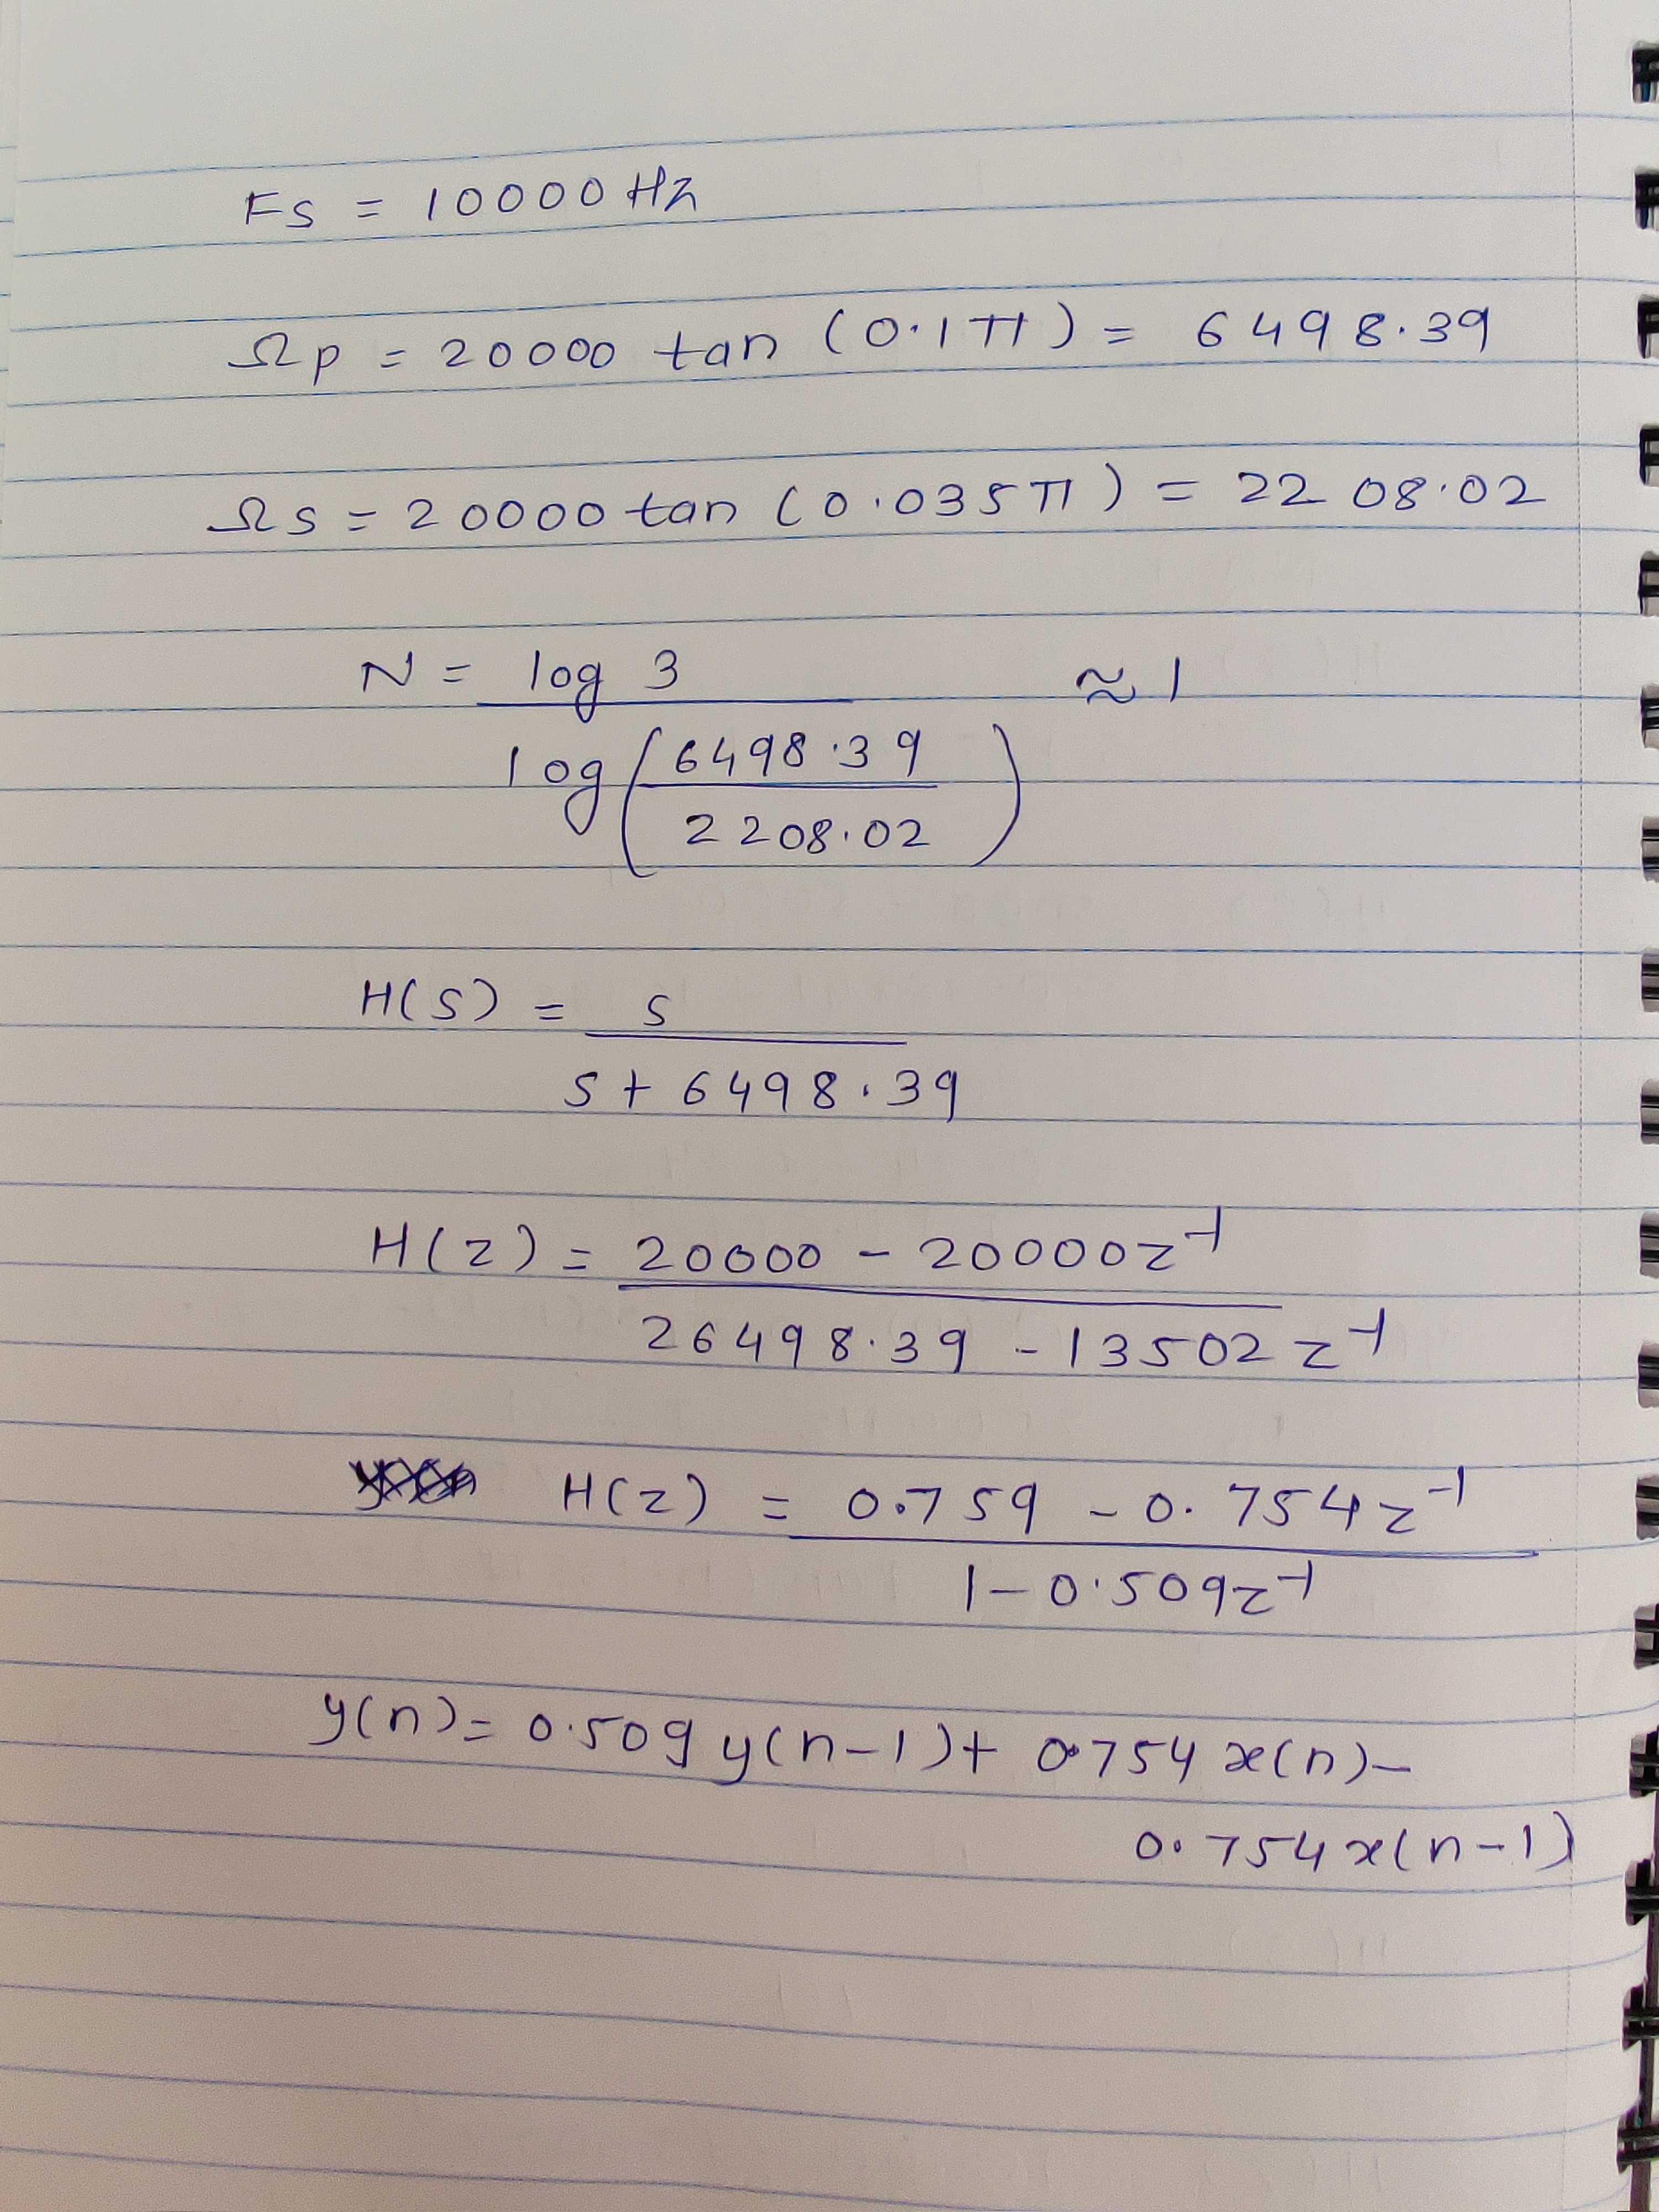 Fs = 10000 Hz
Ωp = 20000 tan (0.1π) = 6498.39
Ωs = 20000 tan (0.035π) = 2208.02
N = log 3 ≈ 1
log (6498.39
2208.02)
H(s) = s
s + 6498.39
H(z) = 20000 - 20000z⁻¹
26498.39 - 13502z⁻¹
H(z) = 0.759 - 0.754z⁻¹
1 - 0.509z⁻¹
y(n) = 0.509 y(n-1) + 0.754 x(n) -
0.754 x(n-1)